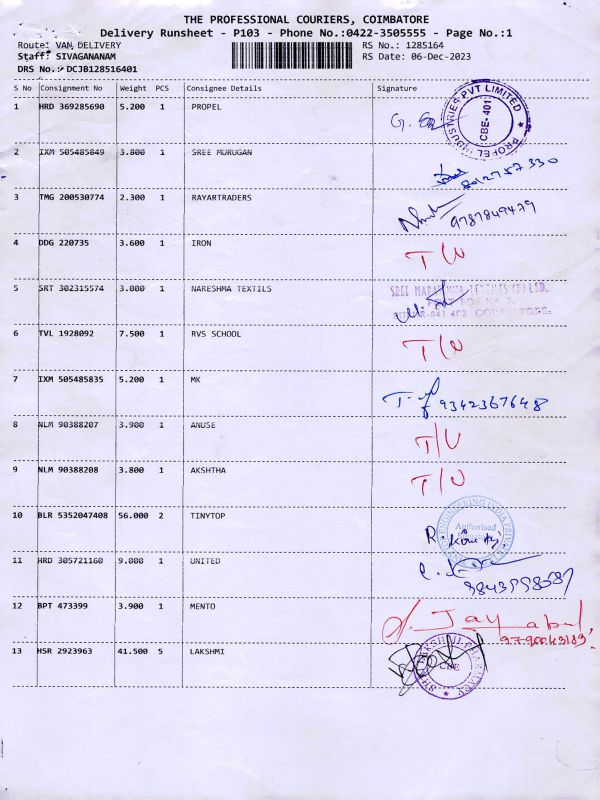 THE PROFESSIONAL COURIERS, COIMBATORE
Delivery Runsheet - P103 - Phone No.:0422-3505555 - Page No.:1
Route: VAN DELIVERY RS No.: 1285164
Staff: SIVAGANANAM RS Date: 06-Dec-2023
DRS No.: DCJB128516401
S No Consignment No Weight PCS Consignee Details Signature
1 HRD 369285690 5.200 1 PROPEL
PROPEL INDUSTRIES PVT LIMITED
CBE-401
2 IXM 505485849 3.800 1 SREE MURUGAN
8012757330
3 TMG 200530774 2.300 1 RAYARTRADERS
9787849479
4 DDG 220735 3.600 1 IRON T/U
5 SRT 302315574 3.000 1 NARESHMA TEXTILS
6 TVL 1928092 7.500 1 RVS SCHOOL T/U
7 IXM 505485835 5.200 1 MK
9342367648
8 NLM 90388207 3.900 1 ANUSE T/U
9 NLM 90388208 3.800 1 AKSHTHA T/U
10 BLR 5352047408 56.000 2 TINYTOP
Authorised
11 HRD 305721160 9.000 1 UNITED
12 BPT 473399 3.900 1 MENTO
13 HSR 2923963 41.500 5 LAKSHMI
CBE